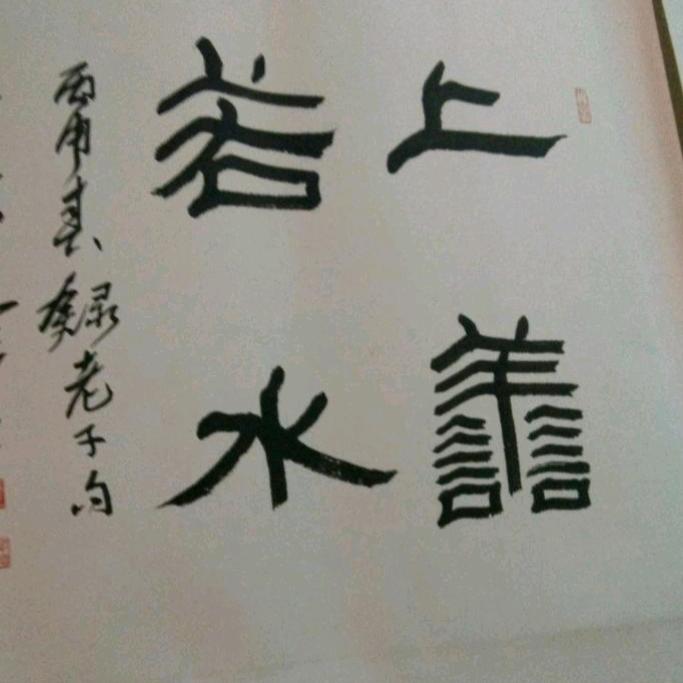 上譱
若水
丙申春錄老子句